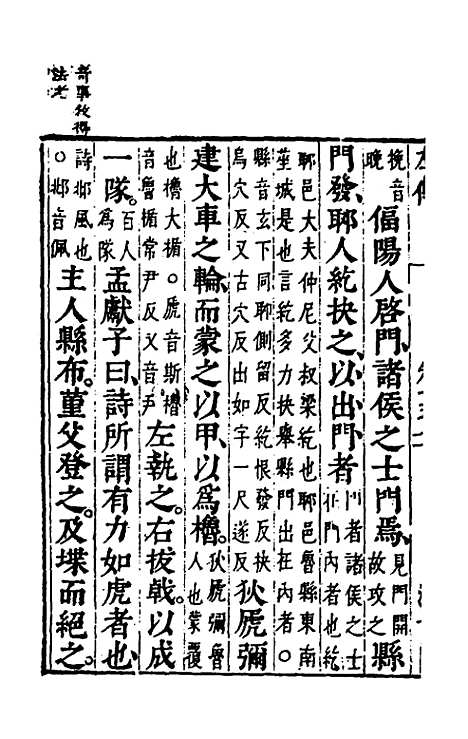 挽音
晚
偪陽人啓門、諸侯之士門焉。
見門開
故攻之
縣
門發、郰人紇抉之、以出門者
門者諸侯之士
在門內者也紇
郰邑大夫仲尼父叔梁紇也郰邑魯縣東南
莝城是也言紇多力抉舉縣門出在內者○
縣音玄下同郰側留反紇恨發反抉
烏穴反又古穴反出如字一尺遂反
狄虒彌
建大車之輪、而蒙之以甲、以爲櫓。
狄虒彌魯
人也蒙覆
也櫓大楯○虒音斯櫓
音魯楯常尹反又音尹
左執之。右拔戟。以成
一隊。
百人
爲隊
孟獻子曰、詩所謂有力如虎者也
詩邶風也
○邶音佩
主人縣布。堇父登之。及堞而絕之。
奇事敘得
法老